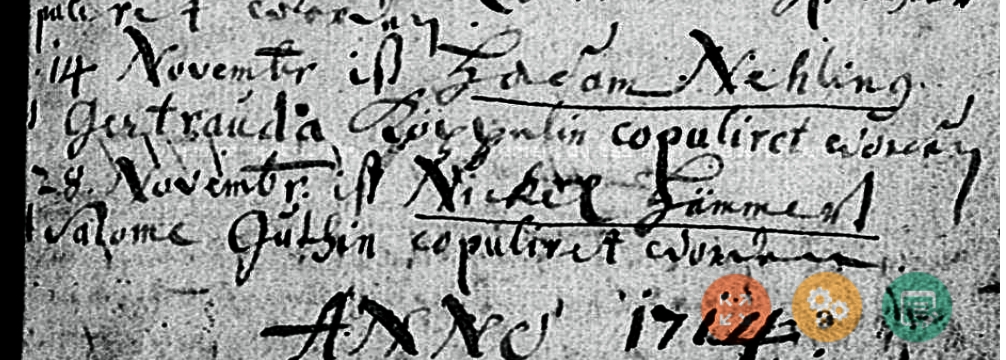 copuliret worden
14 Novembr ist Adam Nehling
Gertrauda copuliret worden
28. Novembr. ist Nickel Hämmerl
Salome Guthin copuliret worden
ANNO 1714.